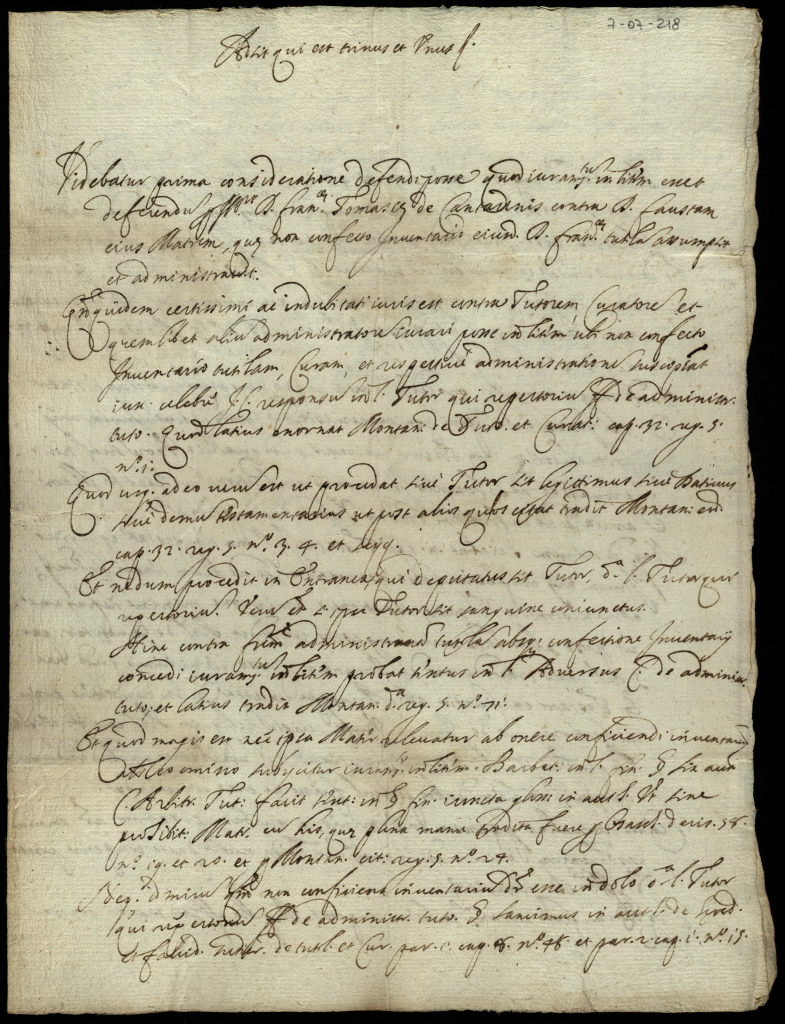 7-07-218
Adsit qui est trinus et Unus
Videbatur prima consideratione defendi posse quod iuram.tu in litem esset
deferendu D. Fran. Tomaso de contra D. Faustam
eius Matrem, que non confecto Inventario eiusd. D. Fran. tutela assumpsit
et administravit.
Et quidem certissimi ac indubitati iuris est contra Tutorem Curatore et
quemlibet aliu administratore iurari posse in litem ubi non confecto
Inventario tutelam, Curam, et respective administratione susceperat
iux. celebre J.C. responsu in l. Tutor qui repertoriu ff de administr.
tuto. Quod latius exornat Montan. de Tuto. et Curat. cap. 32. reg. 5.
n.º 1.
Quod usq. adeo veru est ut procedat sive Tutor sit legitimus sive Dativus
sive demu testamentarius ut post alios quos citat tradit Montan. eod.
cap. 32. reg. 5. n.º 3. 4. et seqq.
Et nedum procedit in Extraneo, qui deputatus sit Tutor, d.a l. Tutor qui
repertoriu. Veru et si ipse Tutor sit sanguine coniunctus.
Hinc contra administrante tutela absq. confectione Inventarij
concedi iuram.tu in litem probat textus in l. Adversus C. de administ.
tuto, et latius tradit Montan. d.a reg. 5. n.º 71.
Et quod magis est nec ipsa Mater relevatur ab onere conficiendi inventariu
Et eo omisso subijcitur iuram. in litem. Barbat. in l. fin. § sin aute
C. Arbitr. Tut. facit text. in § fin. iuncta glos. in auth. Ut sine
prohibit. Matr. cu his, que plena manu tradita fuere p Grasel. decis. 58.
n.º 19. et 20. et p Montan. cit. reg. 5. n.º 24.
Neq. d. miru non conficiens inventariu esse in dolo d.a l. Tutor
qui repertoriu ff de administr. tuto. § sancimus in auth. de hered.
et falcid. de tutel. et Cur. par. 1. cap. 8. n.º 48 et par. 2. cap. 1. n.º 15.